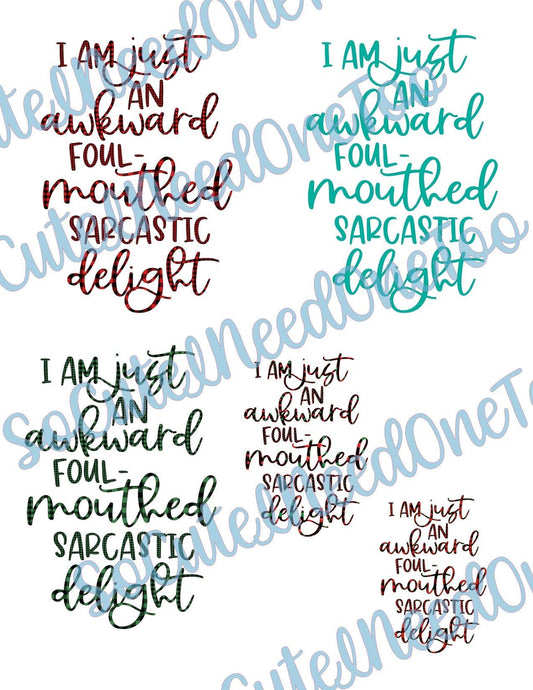 I AM just
AN
awkward
FOUL-
mouthed
SARCASTIC
delight
I AM just
AN
awkward
FOUL-
mouthed
SARCASTIC
delight
I AM just
AN
awkward
FOUL-
mouthed
SARCASTIC
delight
I AM just
AN
awkward
FOUL-
mouthed
SARCASTIC
delight
I AM just
AN
awkward
FOUL-
mouthed
SARCASTIC
delight
CuteINeedOneToo
CuteINeedOneToo
SoCuteINeedOneToo
SoCuteINeedOneToo
CuteINeedOneToo